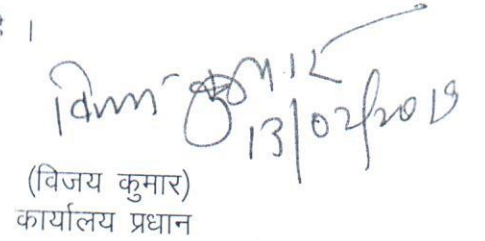 है ।
13/02/2019
(विजय कुमार)
कार्यालय प्रधान